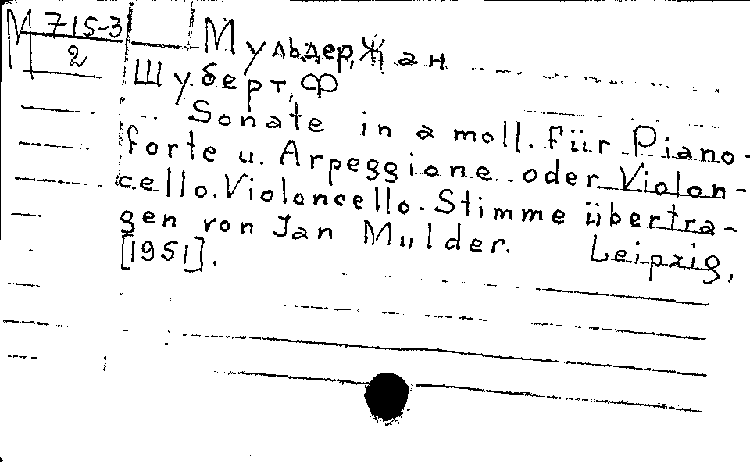 М 715-3
2
Мульдер, Жан
Шуберт, Ф
Sonate in a moll. Für Piano-
forte u. Arpeggione oder Violon-
cello. Violoncello. Stimme übertra-
gen von Jan Mulder. Leipzig,
[1951].